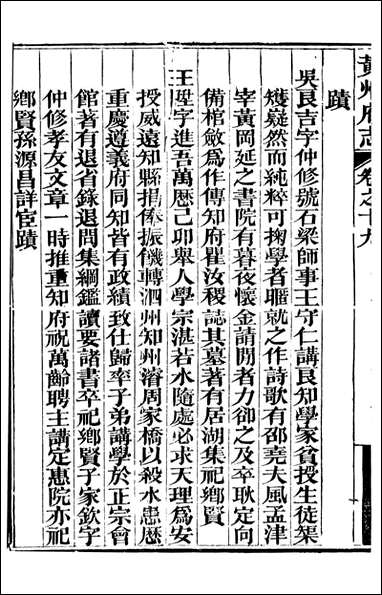 黃州府志 卷之十九
蹟
吳良吉字仲修號石梁師事王守仁講良知學家貧授生徒集
矱嶷然而純粹可掬學者驅就之作詩歌有邵堯夫風孟津
宰黃岡延之書院有暮夜懷金請閒者力卻之及卒耿定向
備棺斂爲作傳知府瞿汝稷誌其墓著有居湖集祀鄉賢
王陞字進吾萬歷己卯舉人學宗湛若水隨處必求天理爲安
授威遠知縣捐俸振饑轉泗州知州濬周家橋以殺水患歷
重慶遵義府同知皆有政績致仕歸率子弟講學於正宗會
館著有退省錄退問集綱鑑讀要諸書卒祀鄉賢子家欽字
仲修孝友文章一時推重知府祝萬齡聘主講定惠院亦祀
鄉賢孫源昌詳宦蹟